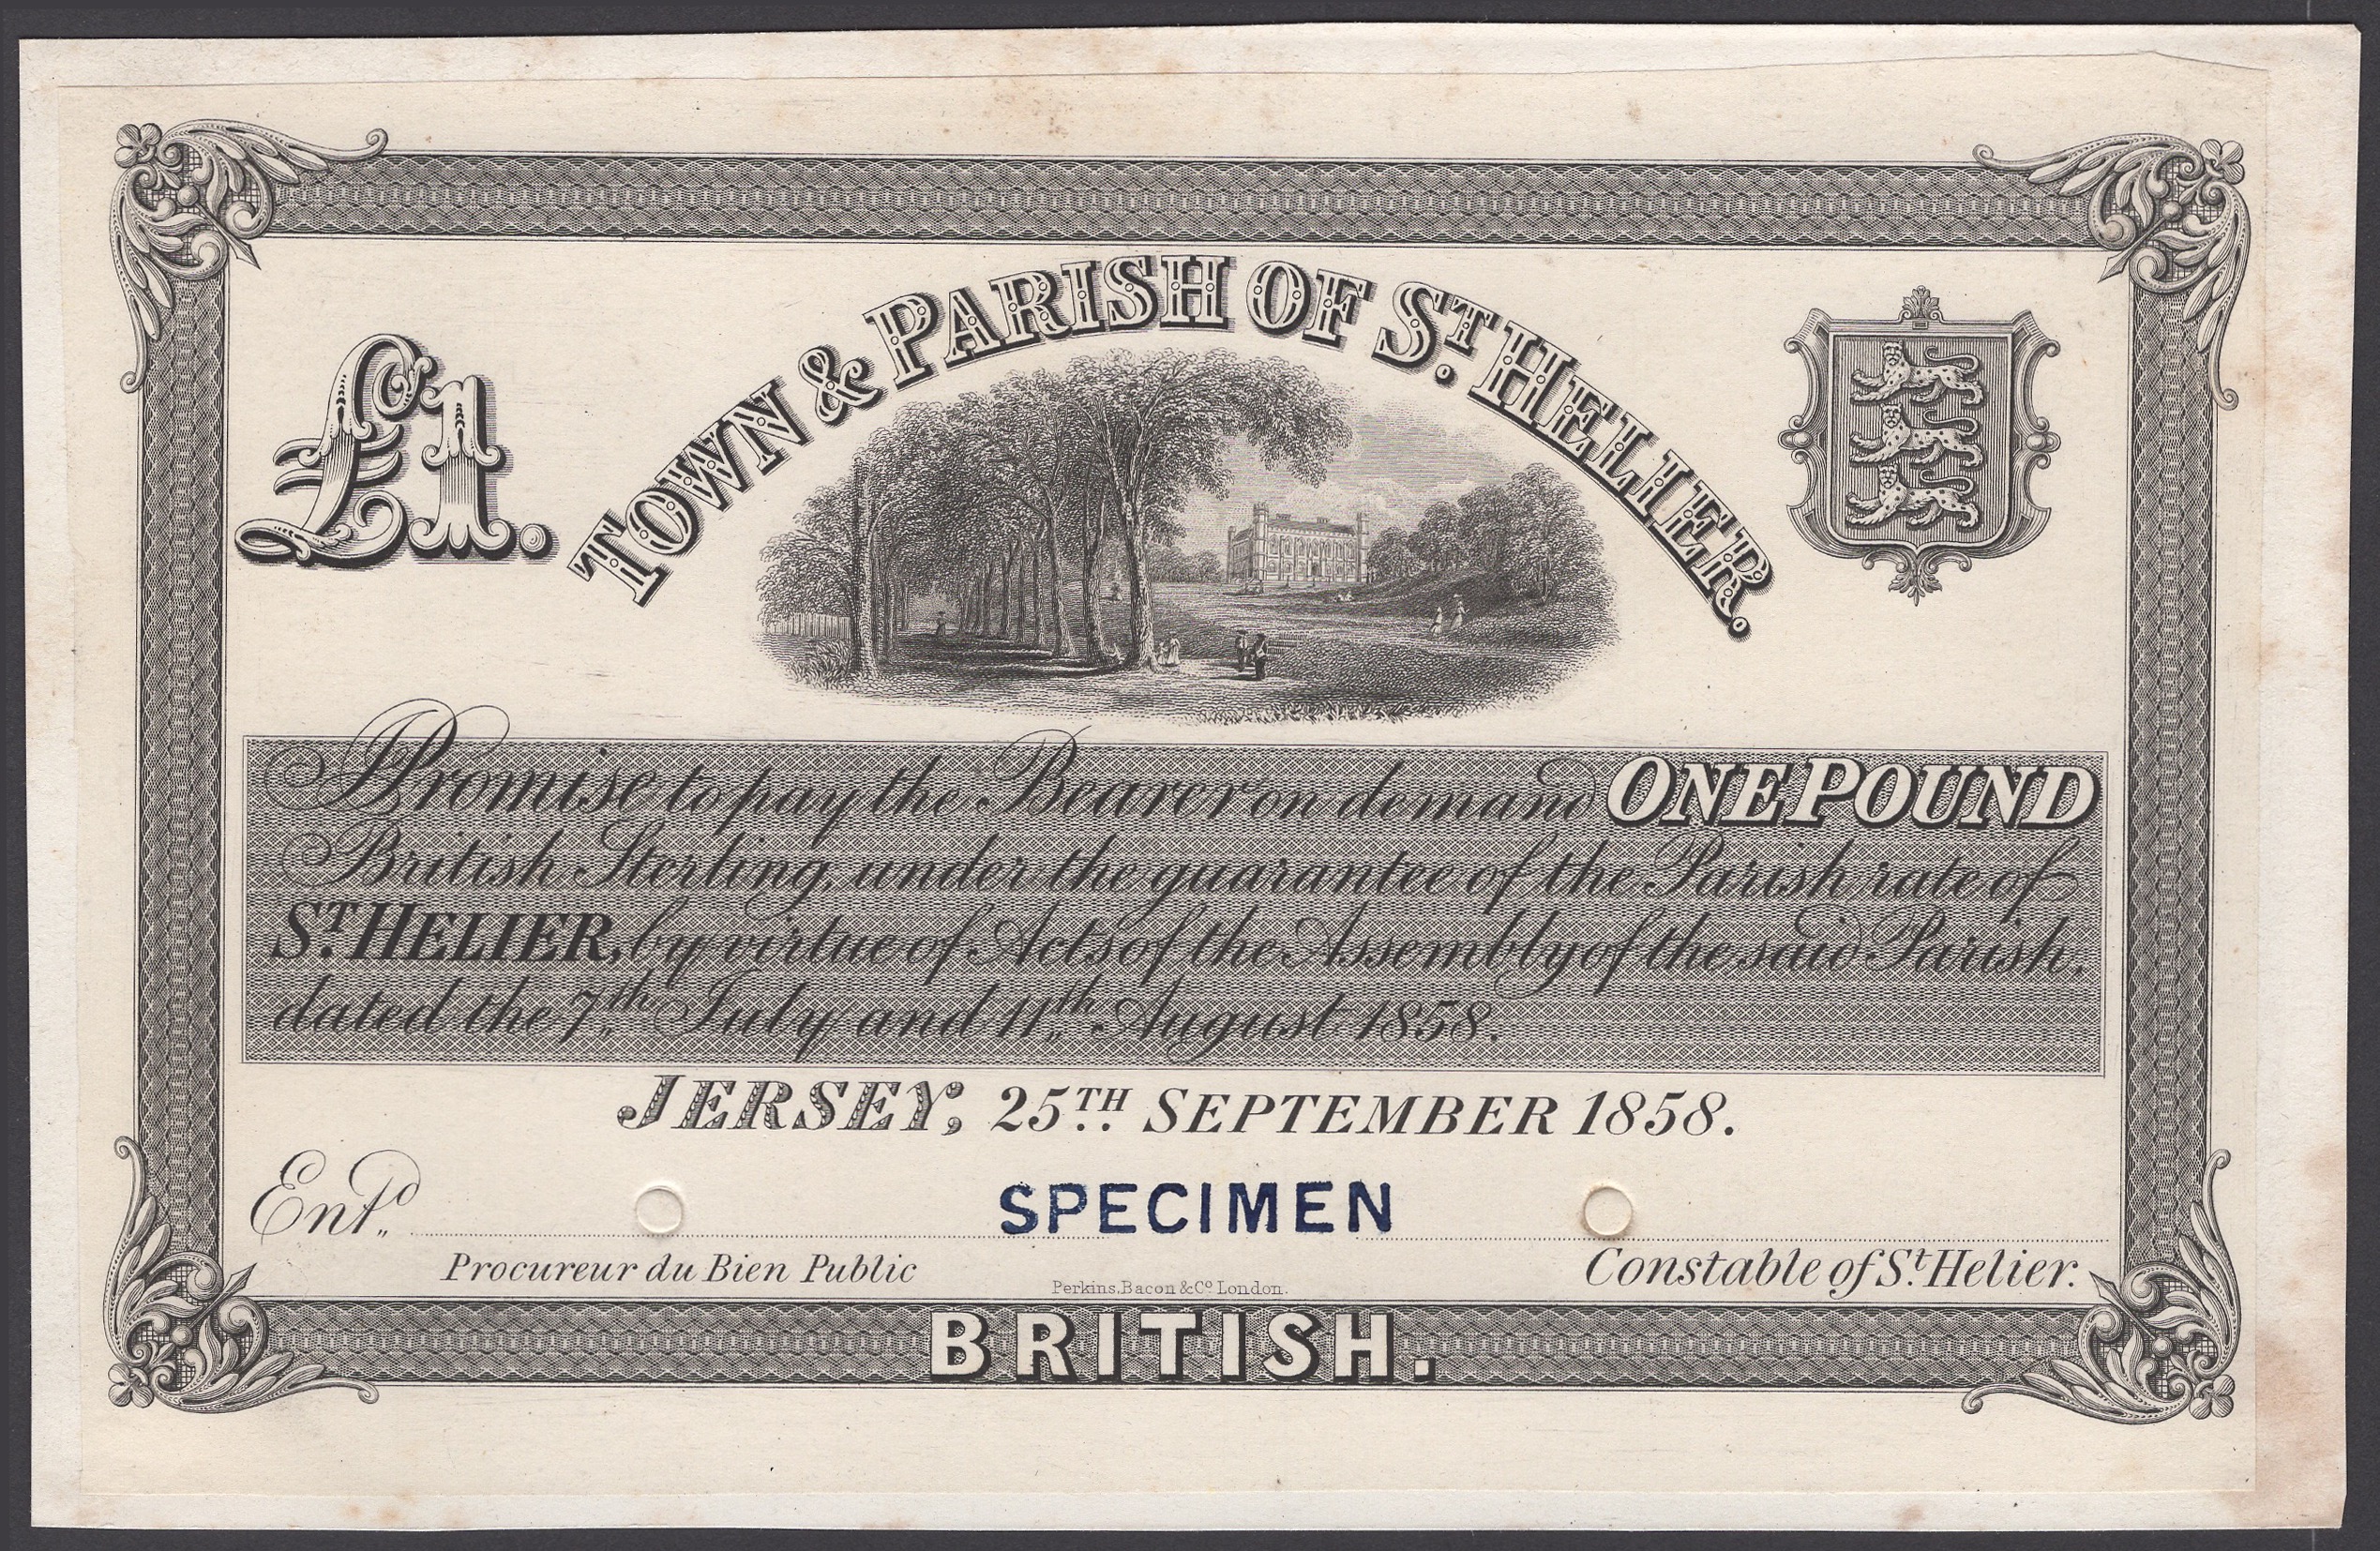 £1.
TOWN & PARISH OF ST. HELIER.
Promise to pay the Bearer on demand ONE POUND
British Sterling, under the guarantee of the Parish rate of
ST. HELIER, by virtue of Acts of the Assembly of the said Parish,
dated the 7th July and 11th August 1858.
JERSEY, 25TH SEPTEMBER 1858.
Entd.
SPECIMEN
Procureur du Bien Public
Constable of St. Helier.
Perkins, Bacon & Co London.
BRITISH.